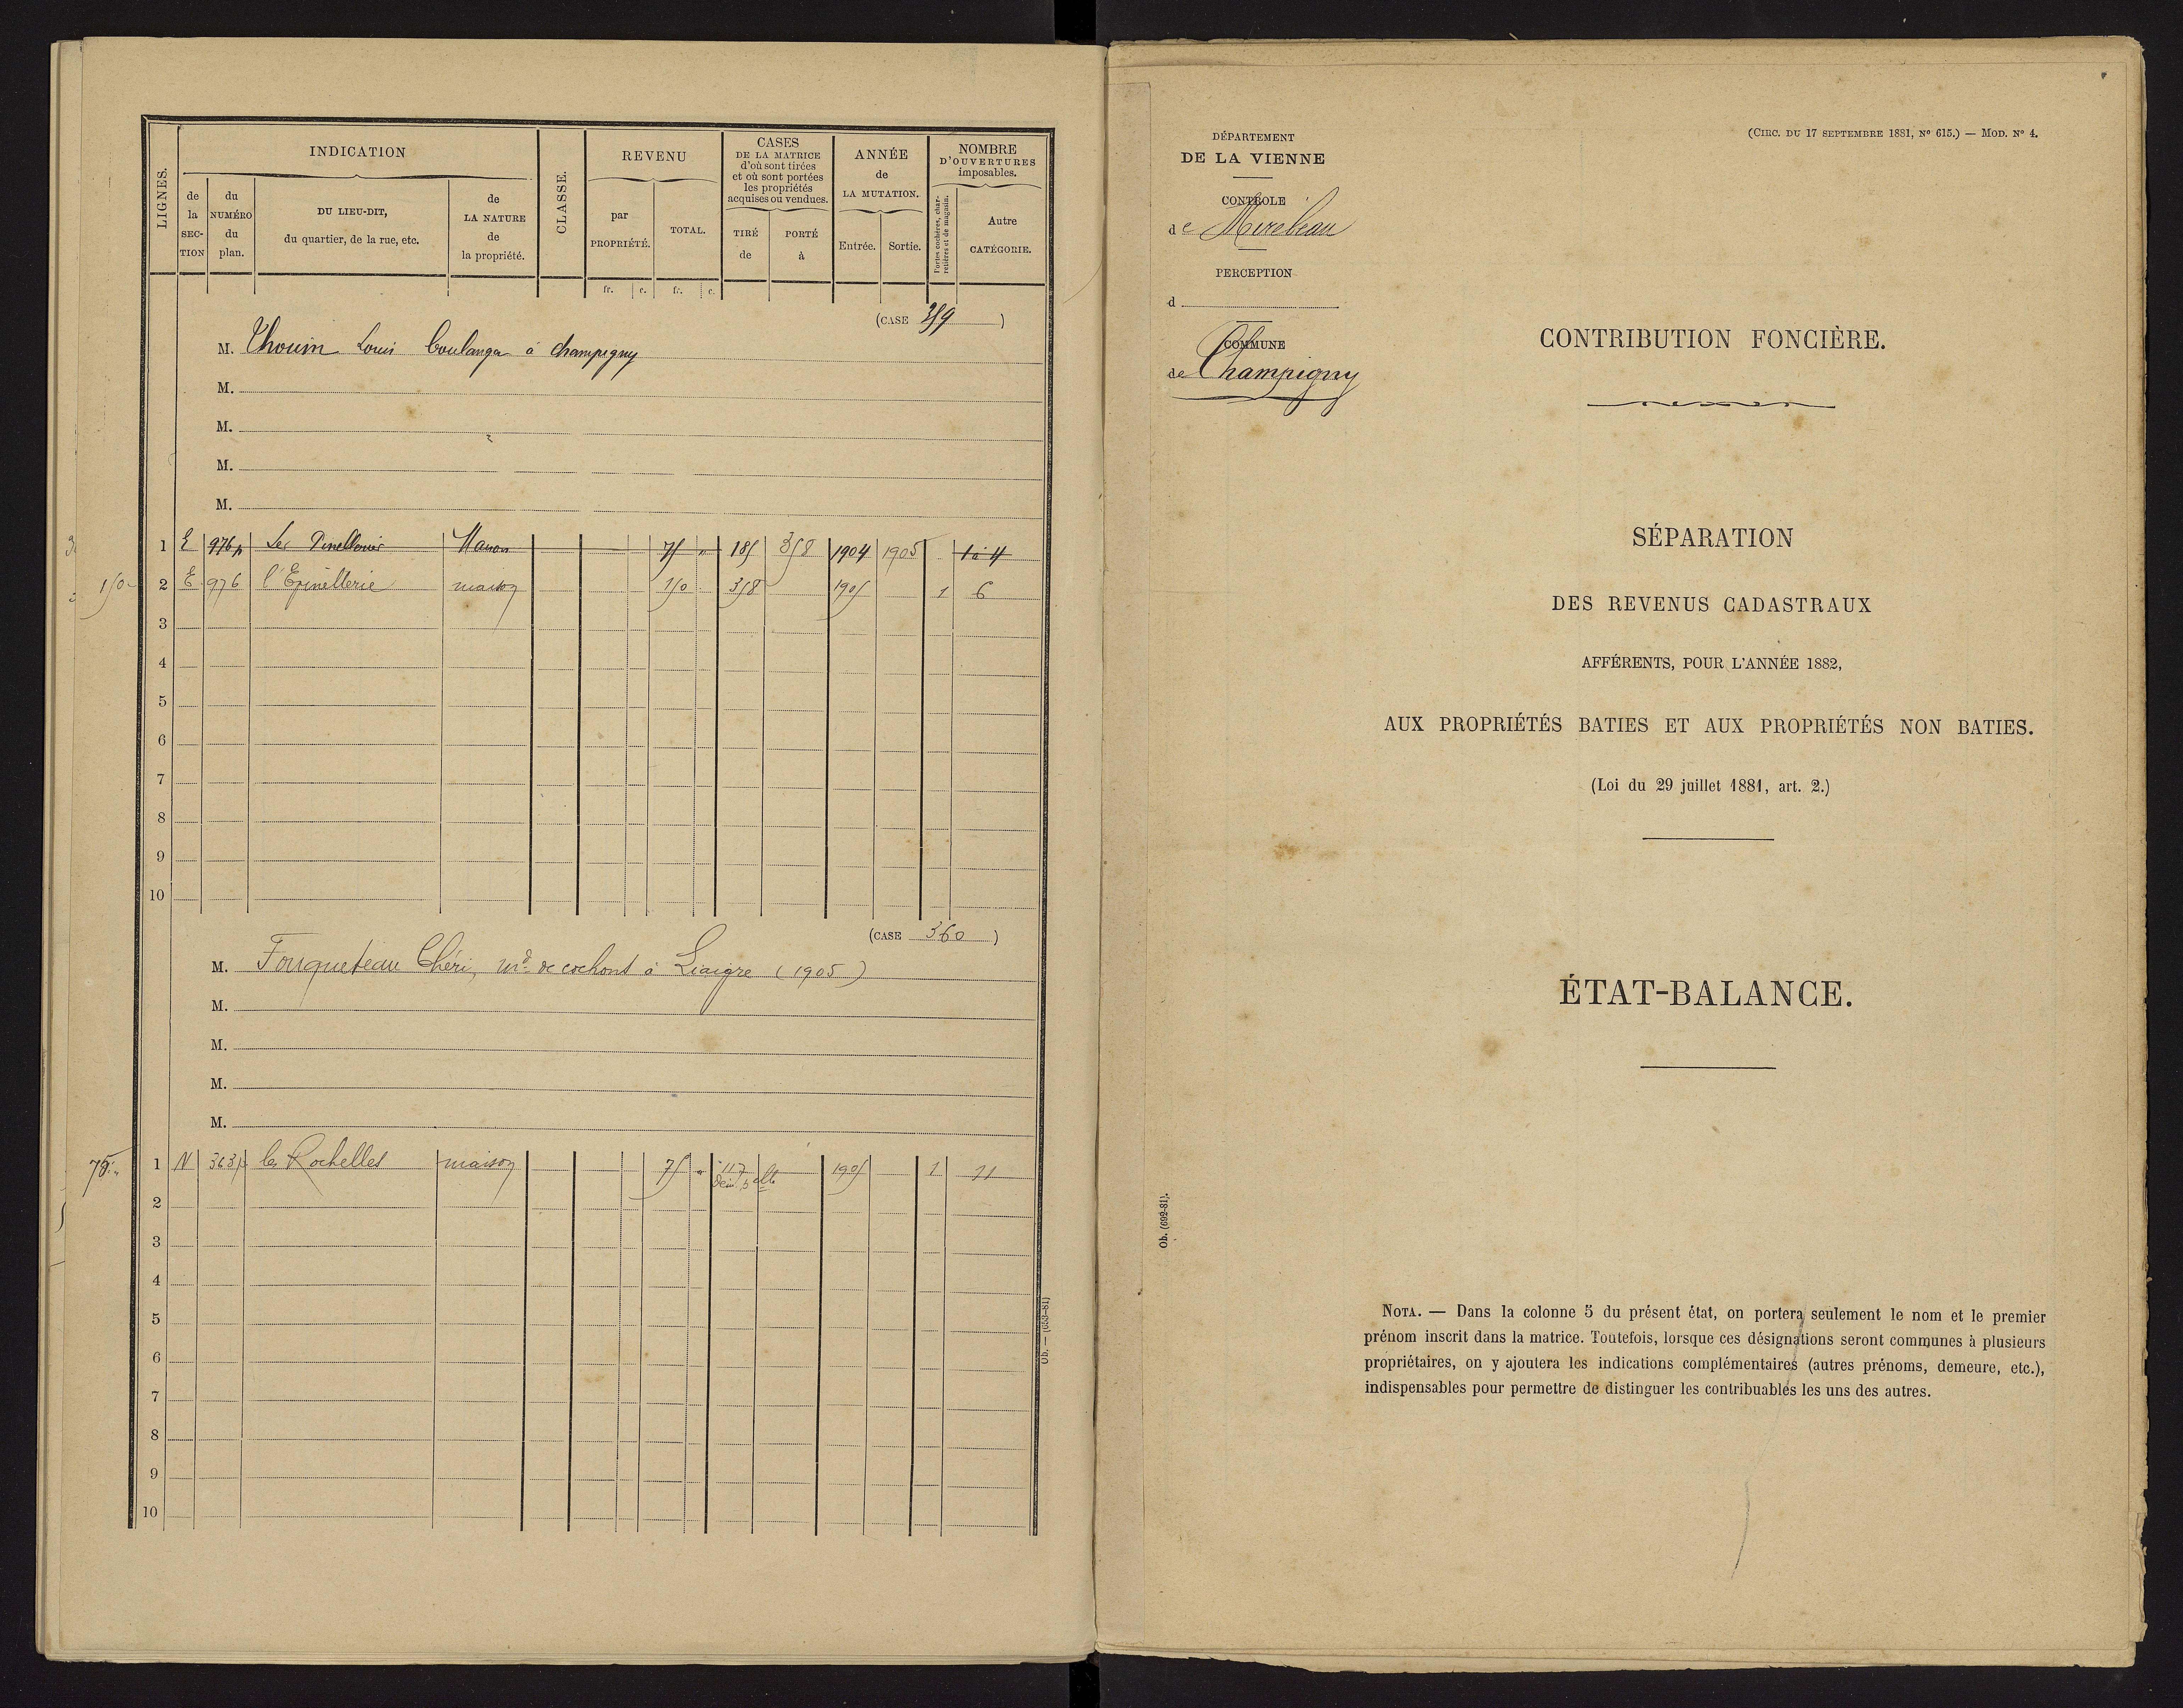 LIGNES.
INDICATION
de la SECTION
du NUMÉRO du plan.
DU LIEU-DIT, du quartier, de la rue, etc.
de LA NATURE de la propriété.
CLASSE.
REVENU
par PROPRIÉTÉ.
TOTAL.
CASES DE LA MATRICE d'où sont tirées et où sont portées les propriétés acquises ou vendues.
TIRÉ de
PORTÉ à
ANNÉE de LA MUTATION.
Entrée.
Sortie.
NOMBRE D'OUVERTURES imposables.
Portes cochères, charretières et de magasin.
Autre CATÉGORIE.
fr. c. fr. c.
(CASE 359)
M. Thouin Louis boulanger à champigny
M.
M.
M.
M.
1 E 976p Maison 75 " 185 358 1904 1905 1 à 4
150 2 E 976 l'Epinellerie maison 150 358 1905 1 6
3
4
5
6
7
8
9
10
(CASE 360)
M. Fouqueteau Chéri, md de cochons à Liaigre (1905)
M.
M.
M.
M.
75 " 1 N 363p les Rochelles maison 75 " 117 1905 1 11
2
3
4
5
6
7
8
9
10
Ob. — (693-81)
DÉPARTEMENT
DE LA VIENNE
CONTRÔLE
de Mirebeau
PERCEPTION
d
COMMUNE
de Champigny
(CIRC. DU 17 SEPTEMBRE 1881, N° 615.) — MOD. N° 4.
CONTRIBUTION FONCIÈRE.
SÉPARATION
DES REVENUS CADASTRAUX
AFFÉRENTS, POUR L'ANNÉE 1882,
AUX PROPRIÉTÉS BATIES ET AUX PROPRIÉTÉS NON BATIES.
(Loi du 29 juillet 1881, art. 2.)
ÉTAT-BALANCE.
Ob. (692-81).
NOTA. — Dans la colonne 5 du présent état, on portera seulement le nom et le premier
prénom inscrit dans la matrice. Toutefois, lorsque ces désignations seront communes à plusieurs
propriétaires, on y ajoutera les indications complémentaires (autres prénoms, demeure, etc.),
indispensables pour permettre de distinguer les contribuables les uns des autres.